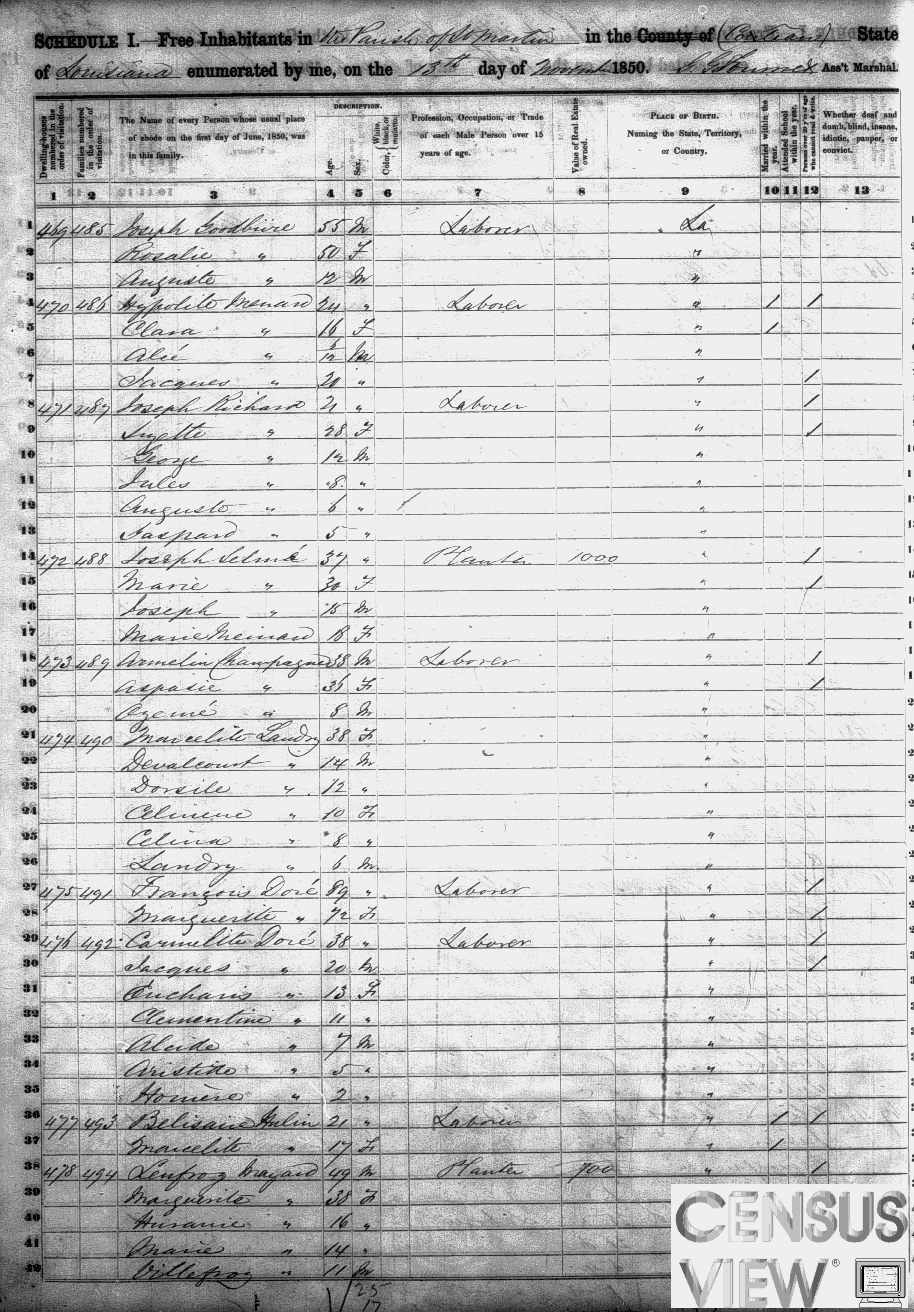 SCHEDULE I. Free Inhabitants in the Parish of St Martin in the County of State
of Louisiana enumerated by me, on the 13th day of Novemb 1850. Ass't Marshal.
Dwelling-houses numbered in the order of visitation.
Families numbered in the order of visitation.
The Name of every Person whose usual place of abode on the first day of June, 1850, was in this family.
DESCRIPTION.
Age.
Sex.
Color, White, black, or mulatto.
Profession, Occupation, or Trade of each Male Person over 15 years of age.
Value of Real Estate owned.
PLACE OF BIRTH. Naming the State, Territory, or Country.
Married within the year.
Attended School within the year.
Persons over 20 y'rs of age who cannot read & write.
Whether deaf and dumb, blind, insane, idiotic, pauper, or convict.
1 2 3 4 5 6 7 8 9 10 11 12 13
1 469 485 Joseph Goodbiire 55 M Laborer La
2 Rosalie " 50 F "
3 Auguste " 12 M "
4 470 486 Hypolite Menard 24 " Laborer " 1 1
5 Clara " 16 F " 1
6 Alié " 6/12 M "
7 Jacques " 20 " " 1
8 471 487 Joseph Richard 21 " Laborer " 1
9 Suzette " 28 F " 1
10 George " 12 M "
11 Jules " 8 " "
12 Auguste " 6 " "
13 Gaspard " 5 " "
14 472 488 Joseph Selmé 37 " Planter 1000 " 1
15 Marie " 30 F " 1
16 Joseph " 15 M "
17 Marie Meinard 18 F "
18 473 489 Armelin Champagne 38 M Laborer " 1
19 Aspasie " 36 F " 1
20 Ozemé " 8 M "
21 474 490 Marcelite Landry 38 F "
22 Devalcourt " 14 M "
23 Dorsile " 12 " "
24 Celimene " 10 F "
25 Celina " 8 " "
26 Landry " 6 M "
27 475 491 François Doré 89 " Laborer " 1
28 Marguerite " 72 F " 1
29 476 492 Carmelite Doré 38 " Laborer " 1
30 Jacques " 20 M " 1
31 Eucharis " 13 F "
32 Clementine " 11 " "
33 Alcide " 7 M "
34 Aristide " 5 " "
35 Homère " 2 " "
36 477 493 Belisaire Hulin 21 " Laborer " 1 1
37 Marcelite " 17 F " 1
38 478 494 Lenfroy Mayard 49 M Planter 700 " 1
39 Marguerite " 38 F
40 Huranie " 16 "
41 Marie " 14 "
Villefroy " 11 M
25
17
CENSUS
VIEW®